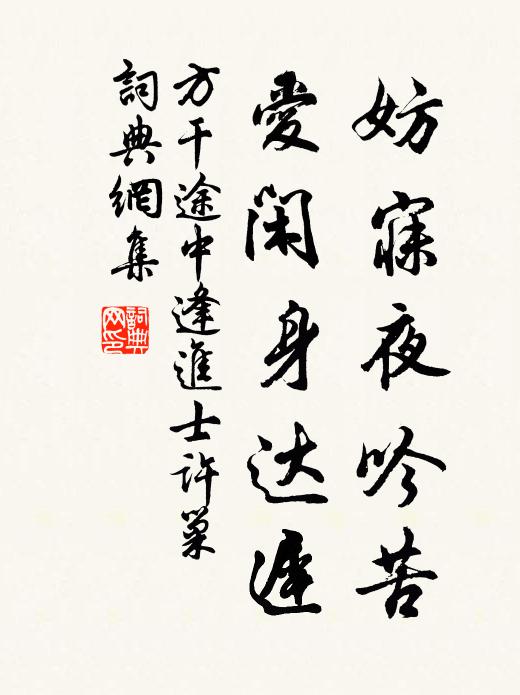 妨寐夜吟苦
愛閑身达遲
方干途中逢進士許巢
詞典網集
詞典网印